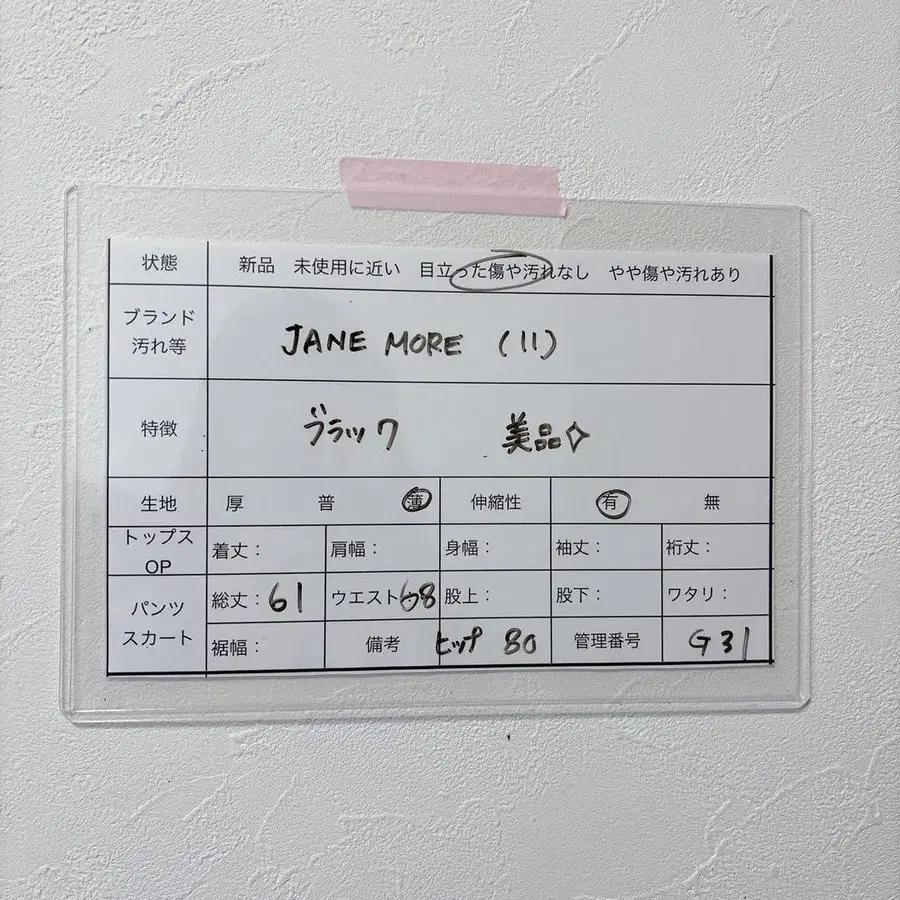 状態 新品 未使用に近い 目立った傷や汚れなし やや傷や汚れあり
ブランド
汚れ等
JANE MORE (11)
特徴 ブラック 美品✧
生地 厚 普 薄 伸縮性 有 無
トップス
OP
着丈: 肩幅: 身幅: 袖丈: 裄丈:
パンツ
スカート
総丈:61 ウエスト68 股上: 股下: ワタリ:
裾幅: 備考 ヒップ 80 管理番号 G31